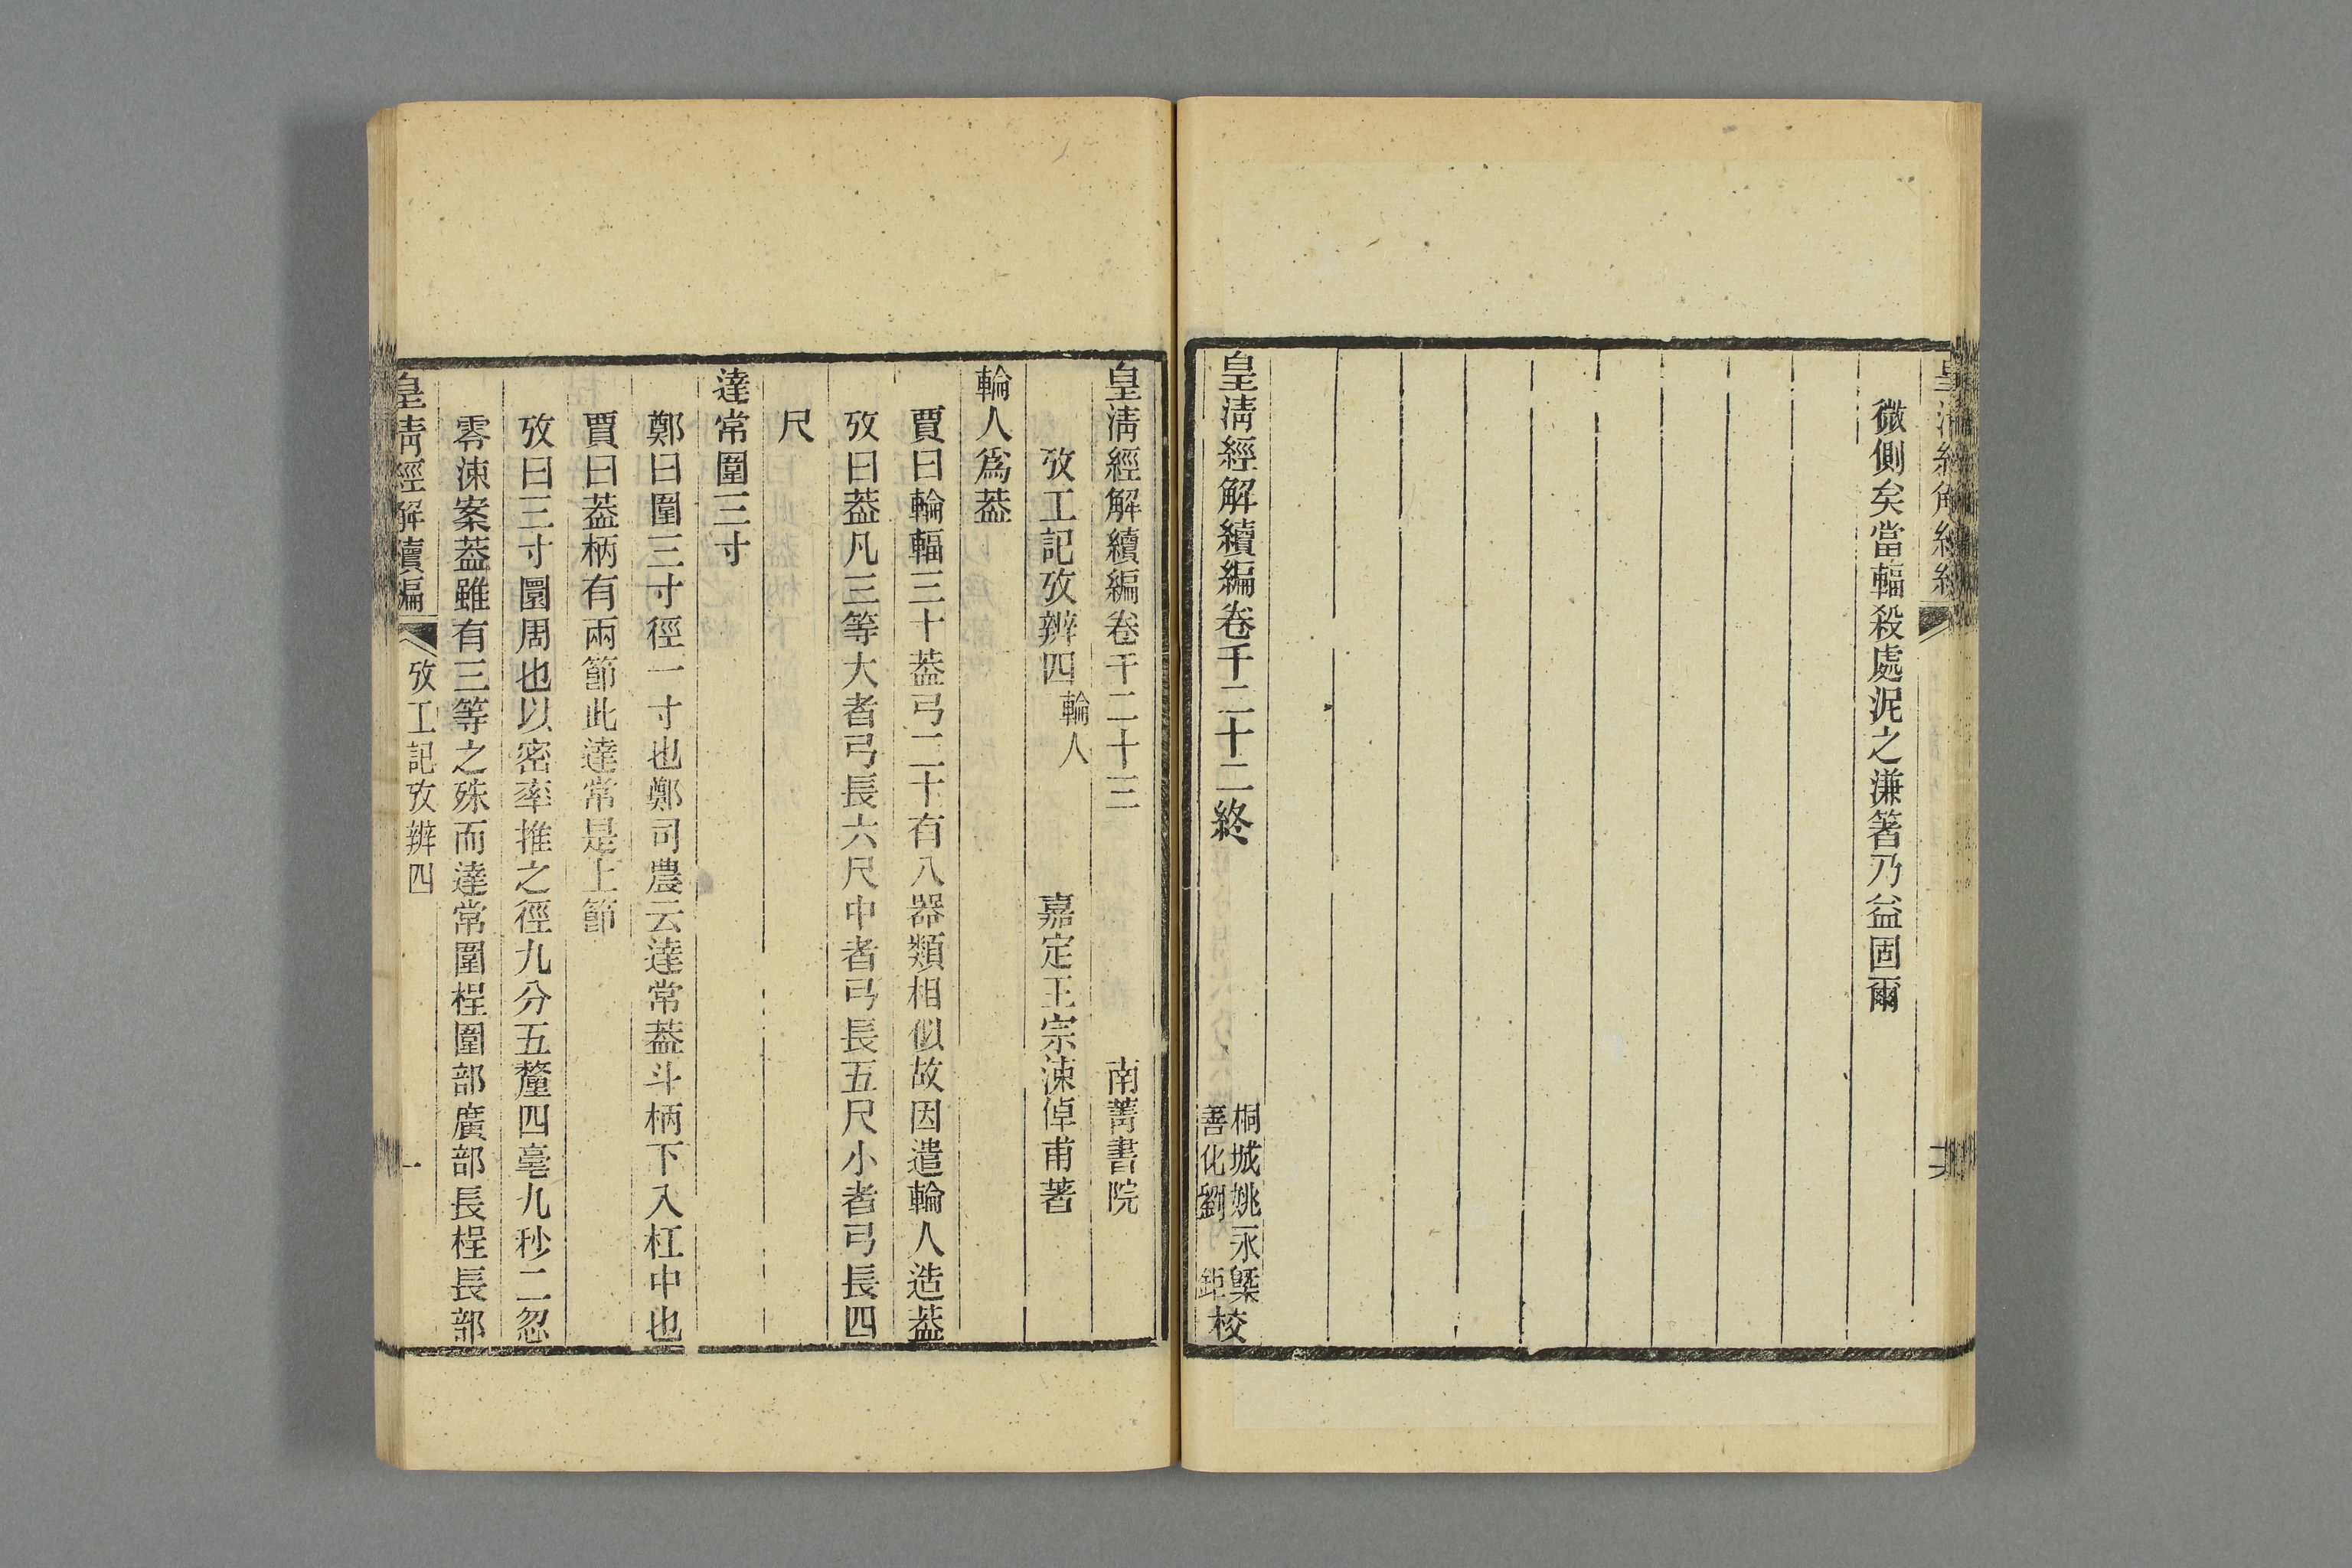 微側矣當輻殺處泥之溓箸乃益固爾
皇淸經解續編卷千二十二終
桐城姚永㮣
善化劉鉅
校
皇淸經解續編卷千二十三
南菁書院
攷工記攷辨四
輪人
嘉定王宗涑倬甫著
輪人爲葢
賈曰輪輻三十葢弓二十有八器類相似故因遣輪人造葢
攷曰葢凡三等大者弓長六尺中者弓長五尺小者弓長四
尺
達常圍三寸
鄭曰圍三寸徑一寸也鄭司農云達常葢斗柄下入杠中也
賈曰葢柄有兩節此達常是上節
攷曰三寸圍周也以密率推之徑九分五釐四毫九秒二忽
零涑案葢雖有三等之殊而達常圍桯圍部廣部長桯長部
皇淸經解續編
攷工記攷辨四
一